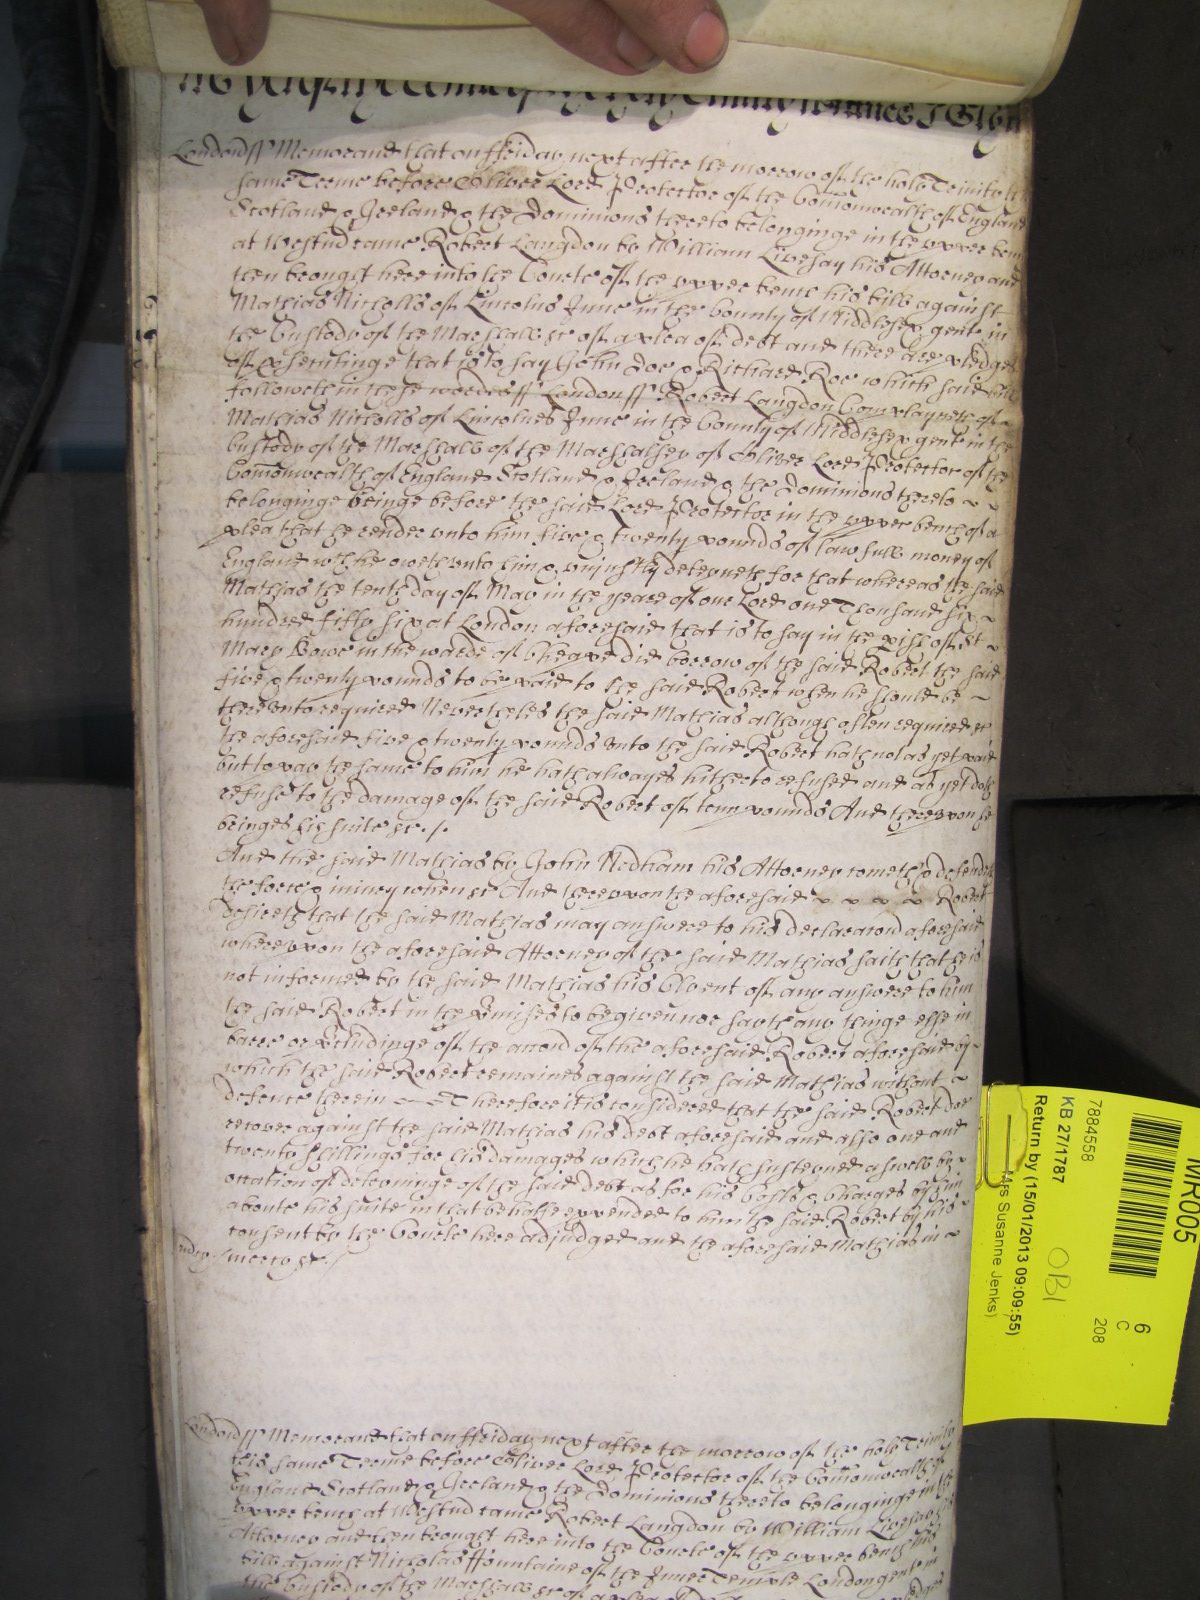 London ss Memorand that on ffriday next after the morrow of the holy Trinity
same Terme before Oliver Lord Protector of the Comonwealth of England
Scotland & Ireland & the Dominions thereto belonginge in the upper bench
at Westm̄ came Robert Langdon by William Livesay his Attorney and
then brought here into the Courte of the upper bench his bill against
Mathias Nicholls of Lincolns Inne in the County of Midd̄lesex gent̄ in
the Custody of the Marshall &c of a plea of debt and there are pledges
of prosecutinge that is to say John Doe & Richard Roe which said bill
followeth in these wordes ss London ss Robert Langdon Complayneth of
Mathias Nicholls of Lincolnes Inne in the County of Middlesex gent in the
Custody of the Marshall of the Marshalsey of Oliver Lord Protector of the
Comonwealth of England Scotland & Ireland & the Dominions thereto
belonginge beinge before the said Lord Protector in the upper bench of a
plea that he render unto him five & twenty pounds of lawfull money of
England wch he oweth unto him & unjustly deteyneth for that whereas the said
Mathias the tenth day of May in the yeare of our Lord one Thousand six
hundred fifty six at London aforesaid that is to say in the pish of St
Mary Bowe in the warde of Cheape did borrow of the said Robert the said
five & twenty pounds to be paid to the said Robert when he should be
thereunto required Nevertheles the said Mathias although often required &c
the aforesaid five & twenty pounds unto the said Robert hath not as yet paid
but to pay the same to him he hath alwayes hitherto refused and as yet doth
refuse to the damage of the said Robert of tenn pounds And thereupon he
bringes his suite &c ./.
And the said Mathias by John Nedham his Attorney cometh & defendeth
the force & iniury when &c And thereupon the aforesaid Robert
desireth that the said Mathias may answere to his declaracon aforesaid
whereupon the aforesaid Attorney of the said Mathias saith that he is
not informed by the said Mathias his Clyent of any answere to him
the said Robert in the p̄mises to be given nor sayth any thinge else in
barre or p̄cludinge of the accon of the aforesaid Robert aforesaid by
which the said Robert remaines against the said Mathias without
defence therein Therefore it is considered that the said Robert doe
recover against the said Mathias his debt aforesaid and also one and
twenty shillings for his damages which he hath susteyned aswell by
occation of deteyninge of the said debt as for his Costs & Charges by him
aboute his suite in that behalfe expended to him the said Robert by his
consent by the Courte here adjudged and the aforesaid Mathias in
mercy &c ./
London ss Memorand that on ffriday next after the morrow of the holy Trinity
this same Terme before Oliver Lord Protector of the Comonwealth of
England Scotland & Ireland & the Dominions thereto belonginge in the
upper bench at Westm̄ came Robert Langdon by William Livesay his
Attorney and then brought here into the Courte of the upper bench his
bill against Nicholas ffountaine of the Inner Temple London gent in
the Custody of the Marshall &c of a plea
MR005
6
C
208
7884558
KB 27/1787
OBI
Return by (15/01/2013 09:09:55)
Mrs Susanne Jenks)